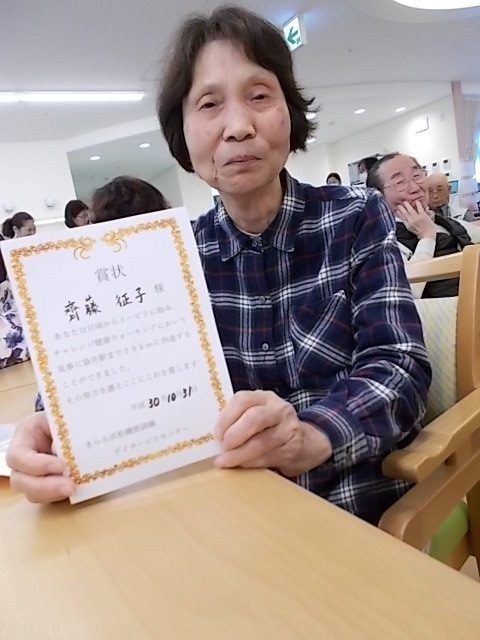 賞状
齊藤 征子 様
あなたは日頃からリハビリに励み、
チャレンジ健康ウォーキングにおいて
見事に袋井駅まで20kmに到達する
ことができました。
その努力を讃えここにこれを賞します
平成 30年10月31日
きらら浜松機能訓練
デイサービスセンター